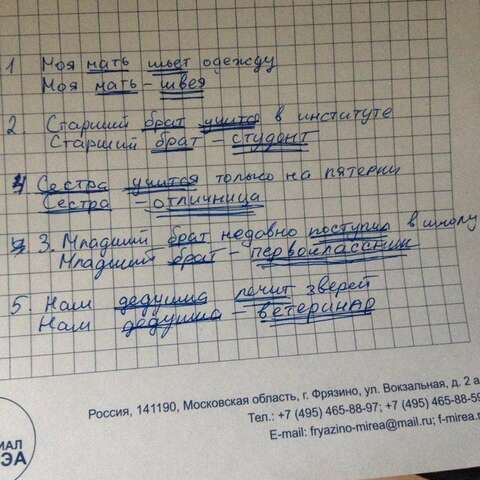 1 Моя мать шьет одежду
Моя мать - швея
2. Старший брат учится в институте
Старший брат - студент
4 Сестра учится только на пятерки
Сестра - отличница
3. Младший брат недавно поступил в школу
Младший брат - первоклассник
5. Наш дедушка лечит зверей
Наш дедушка - ветеринар
Россия, 141190, Московская область, г. Фрязино, ул. Вокзальная, д. 2 а
Тел.: +7 (495) 465-88-97; +7 (495) 465-88-59
E-mail: fryazino-mirea@mail.ru; f-mirea.r